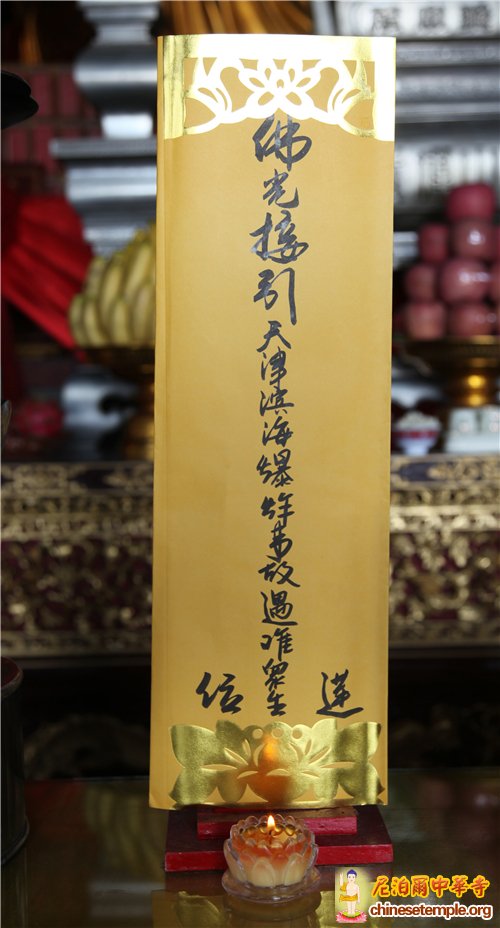 佛光接引天津滨海爆炸事故遇难眾生
蓮位
尼泊爾中華寺
chinesetemple.org